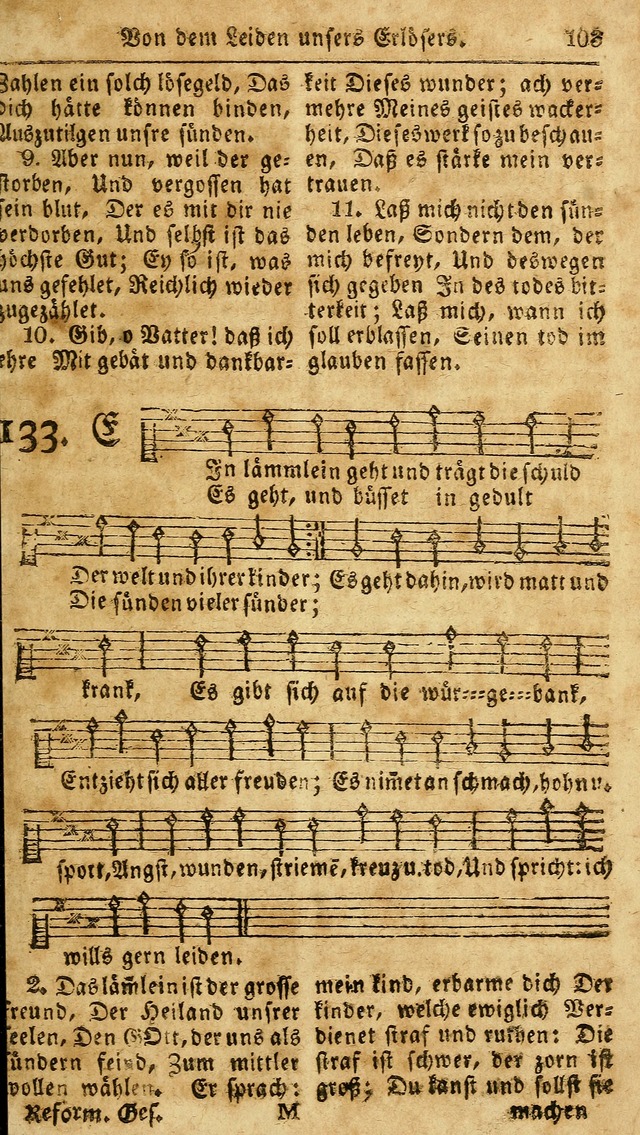 Von dem Leiden unsers Erlösers. 105
Zahlen ein solch lösegeld, Das
dich hätte können binden,
Auszutilgen unsre sünden.
9. Aber nun, weil der ge-
storben, Und vergossen hat
sein blut, Der es mit dir nie
verdorben, Und selbst ist das
höchste Gut; Ey so ist, was
uns gefehlet, Reichlich wieder
zugezählet.
10. Gib, o Vatter! daß ich
ehre Mit gebät und dankbar-
keit Dieses wunder; ach ver-
mehre Meines geistes wacker-
heit, Dieses werk so zu beschau-
en, Daß es stärke mein ver-
trauen.
11. Laß mich nicht den sün-
den leben, Sondern dem, der
mich befreyt, Und deswegen
sich gegeben In des todes bit-
terkeit; Laß mich, wann ich
soll erblassen, Seinen tod im
glauben fassen.
133. E
In lämmlein geht und trägt die schuld
Es geht, und büsset in gedult
Der welt und ihrer kinder; Es geht dahin, wird matt und
Die sünden vieler sünder;
krank, Es gibt sich auf die wür---ge---bank,
Entzieht sich aller freuden; Es nim̄et an schmach, hohn u.
spott, Angst, wunden, striemē, kreuz u. tod, Und spricht: ich
wills gern leiden.
2. Das läm̄lein ist der grosse
freund, Der Heiland unsrer
seelen, Den GOtt, der uns als
sündern feind, Zum mittler
wollen wählen. Er sprach:
mein kind, erbarme dich Der
kinder, welche ewiglich Ver-
dienet straf und ruthen: Die
straf ist schwer, der zorn ist
groß; Du kanst und sollst sie
Reform. Ges. M machen